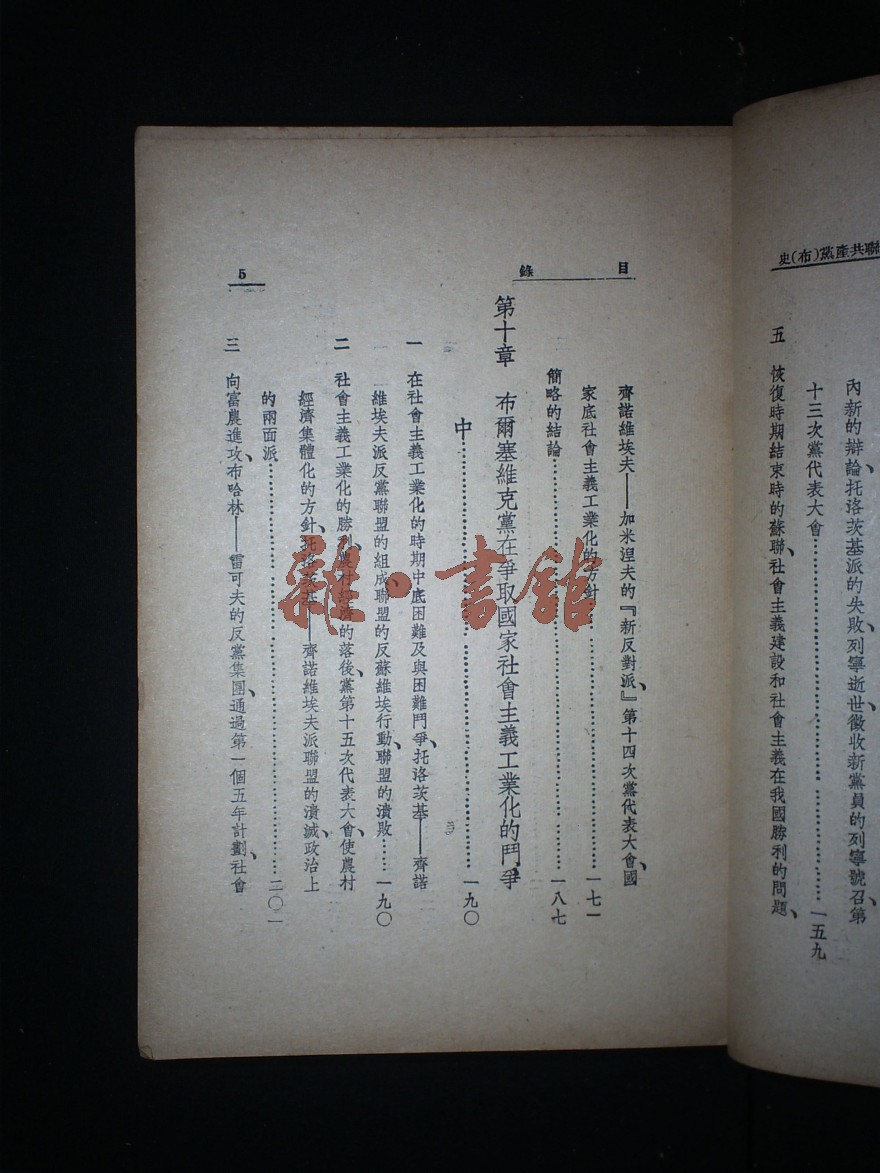 聯共產黨(布)史
內新的辯論、托洛茨基派的失敗、列寧逝世、徵收新黨員的列寧號召、第
十三次黨代表大會……一五九
五 恢復時期結束時的蘇聯、社會主義建設和社會主義在我國勝利的問題、
目錄
齊諾維埃夫——加米湼夫的『新反對派』、第十四次黨代表大會、國
家底社會主義工業化的方針……一七一
簡略的結論……一八七
第十章 布爾塞維克黨在爭取國家社會主義工業化的鬥爭
中……一九〇
一 在社會主義工業化的時期中底困難及與困難鬥爭、托洛茨基——齊諾
維埃夫派反黨聯盟的組成、聯盟的反蘇維埃行動、聯盟的潰敗……一九〇
二 社會主義工業化的勝利、農村經濟的落後、黨第十五次代表大會、使農村
經濟集體化的方針、托洛茨基——齊諾維埃夫派聯盟的潰滅、政治上
的兩面派……二〇一
三 向富農進攻、布哈林——雷可夫的反黨集團、通過第一個五年計劃、社會
5
雜·書館